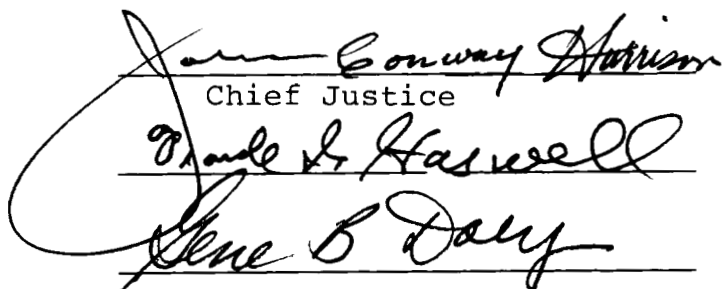 John Conway Harrison
Chief Justice
Frank I. Haswell
Gene B Daly